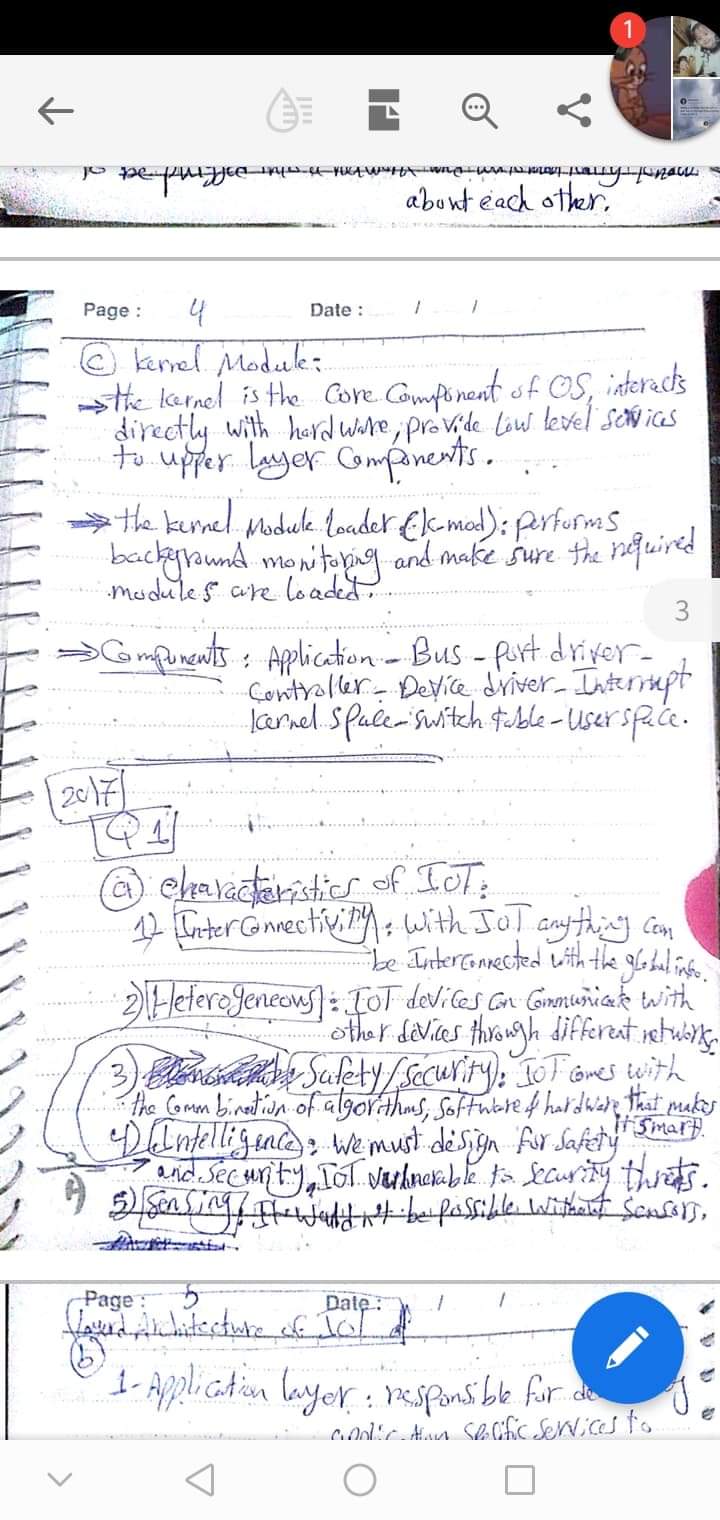 1
be plugged into a network and automatically
about each other.
Page : 4 Date : / /
(C) Kernel Module:
→ the kernel is the Core Component of OS, interacts
directly with hardware, provide low level services
to upper layer Components.
⇒ the kernel Module loader (k-mod): performs
background monitoring and make sure the required
modules are loaded.
3
⇒ Components : Application - Bus - port driver -
Controller - Device driver - Interrupt
kernel space - switch table - user space.
2017
Q1
(a) characteristics of IoT:
1) Interconnectivity : With IoT anything can
be Interconnected with the global info.
2) Heterogeneous : IoT devices can Communicate with
other devices through different networks.
3) Safety/security : IoT comes with
the Combination of algorithms, software & hardware that makes
it smart.
4) Intelligence : we must design for safety
→ and security, IoT vulnerable to security threts.
5) Sensing : It wouldn't be possible without sensors.
Page : 5 Date : / /
Layerd Architecture of IOT
(b)
1- Application layer : responsible for
application specific services to